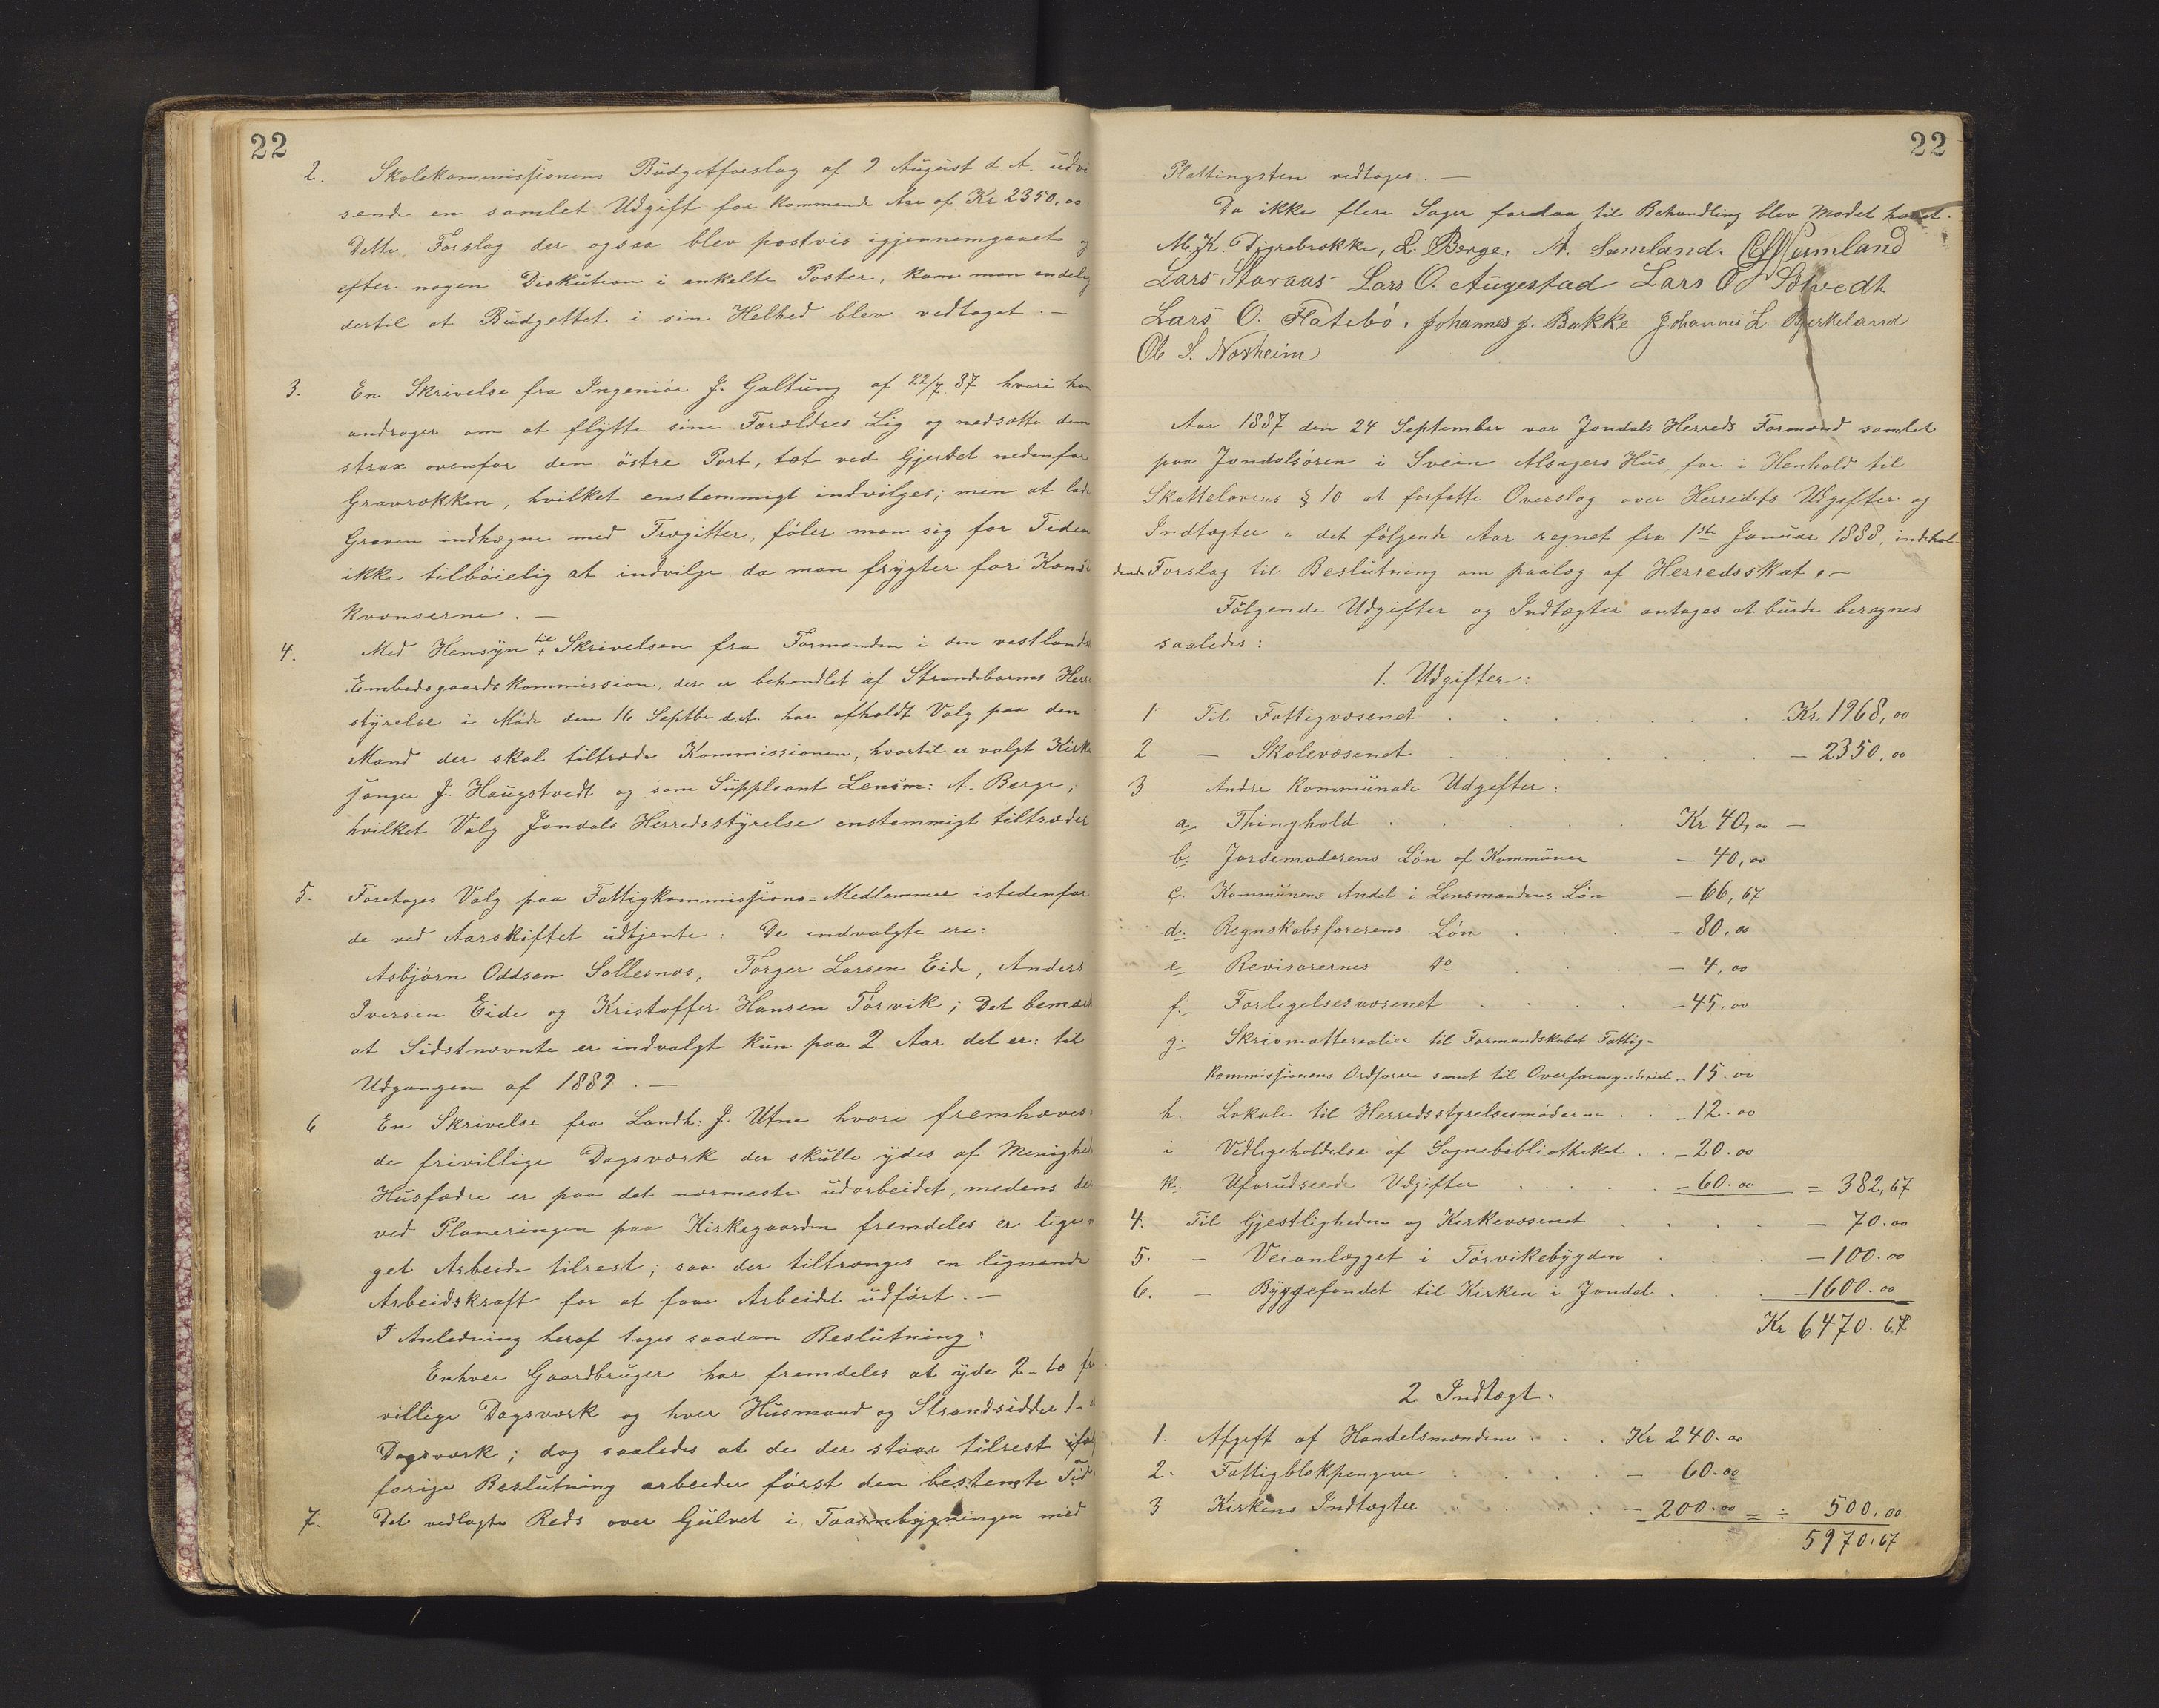 22
2. Skolekommissionens Büdgetforslag af 9 August d. A. udvi
sende en samlet Udgift for kommende Aar af Kr 2350,00
Dette Forslag der ogsaa blev postvis igjennemgaaet og
efter nogen Diskution i enkelte Poster, kom man endelig
dertil at Büdgettet i sin Helhed blev vedtaget. —
3. En Skrivelse fra Ingeniør J. Galtung af 22/7 87 hvori han
andrager om at flytte sine Forældres Lig og nedsætte dem
strax ovenfor den østre Port, tæt ved Gjerdet nedenfor
Gravrækken, hvilket enstemmigt indvilges; men at lade
Graven indhægne med Trægitter, føler man sig for Tiden
ikke tilbøielig at indvilge, da man frygter for Konse
kvænserne. —
4. Med Hensyn til Skrivelsen fra Formanden i den vestlands
Embedsgaardskommission, der er behandlet af Strandebarms Herre
styrelse i Møde den 16 Septbr d. A. har afholdt Valg paa den
Mand der skal tiltræde Kommissionen, hvortil er valgt Kirke
sanger J. Haugstvedt og som Süppleant Lensm: A. Berge,
hvilket Valg Jondals Herredsstyrelse enstemmigt tiltræder
5. Foretages Valg paa Fattigkommissions=Medlemmer istedenfor
de ved Aarskiftet udtjente: De indvalgte ere:
Asbjørn Oddsen Sollesnæs, Torger Larsen Eide, Anders
Iversen Eide og Kristoffer Hansen Tørvik; Det bemærk
at Sidstnævnte er indvalgt kun paa 2 Aar det er: til
Udgangen af 1889. —
6 En Skrivelse fra Landh: J. Utne hvori fremhæves
de frivillige Dagsværk der skulle ydes af Menighed
Husfædre er paa det nærmeste udarbeidet, medens der
ved Planeringen paa Kirkegaarden fremdeles er lige
get Arbeide tilrest; saa der tiltrænges en lignende
Arbeidskraft for at faae Arbeidet udført. —
I Anledning heraf tages saadan Beslutning:
Enhver Gaardbruger har fremdeles at yde 2-to fri
villige Dagsværk og hver Husmand og Strandsidder 1-
Dagsværk; dog saaledes at de der staar tilrest
forige Beslutning arbeider først den bestemte Tid
7. Det vedlagte Reds over Gulvet i Taarnbygningen med
22
Plattingsten vedtages. —
Da ikke flere Sager forelaa til Behandling blev Mødet hævet.
M. K. Digrebrække, L. Berge, A. Samland. Samland
Lars Stavaas Lars O. Augestad Lars O Solvedt
Lars O. Flatebø. Johannes J. Bakke Johannes L. Byrkeland
Ole S. Norheim
Aar 1887 den 24 September var Jondals Herreds Formænd samlet
paa Jondalsøren i Svein Alsagers Hus, for i Henhold til
Skattelovens § 10 at forfatte Overslag over Herredets Udgifter og
Indtægter i det følgende Aar regnet fra 1ste Januar 1888, indehol-
dende Forslag til Beslutning om paalæg af Herredsskat. —
Følgende Udgifter og Indtægter antages at burde beregnes
saaledes:
1. Udgifter:
1 Til Fattigvæsenet . . . . . . Kr 1968,00
2 — Skolevæsenet . . . . . . — 2350,00
3 Andre Kommunale Udgifter:
a, Thinghold . . . . . Kr 40,00 —
b, Jordemoderens Løn af Kommunen — 40,00
c. Kommunens Andel i Lensmandens Løn — 66,67
d. Regnskabsførerens Løn . . . — 80,00
e, Revisorernes do . . . — 4,00
f. Forligelsesvæsenet . . . . — 45,00
g. Skrivmatterealier til Formandskabet Fattig-
kommissionens Ordfører samt til Overformynderiet — 15.00
h. Lokale til Herredsstyrelsesmøderne . . — 12.00
i Vedligeholdelse af Sognebibliotheket . . — 20.00
k. Uforudseede Udgifter . . . . . — 60.00 = 382,67
4. Til Gjestligheden og Kirkevæsenet . . . . — 70.00
5. — Veianlægget i Tørvikebygden . . . — 100.00
6. — Byggefondet til Kirken i Jondal . . . — 1600.00
Kr 6470.67
2 Indtægt.
1. Afgift af Handelsmændene . . . Kr 240.00
2. Fattigblokpengene . . . . . — 60.00
3 Kirkens Indtægter . . . . — 200.00 = ÷ 500,00
5970,67